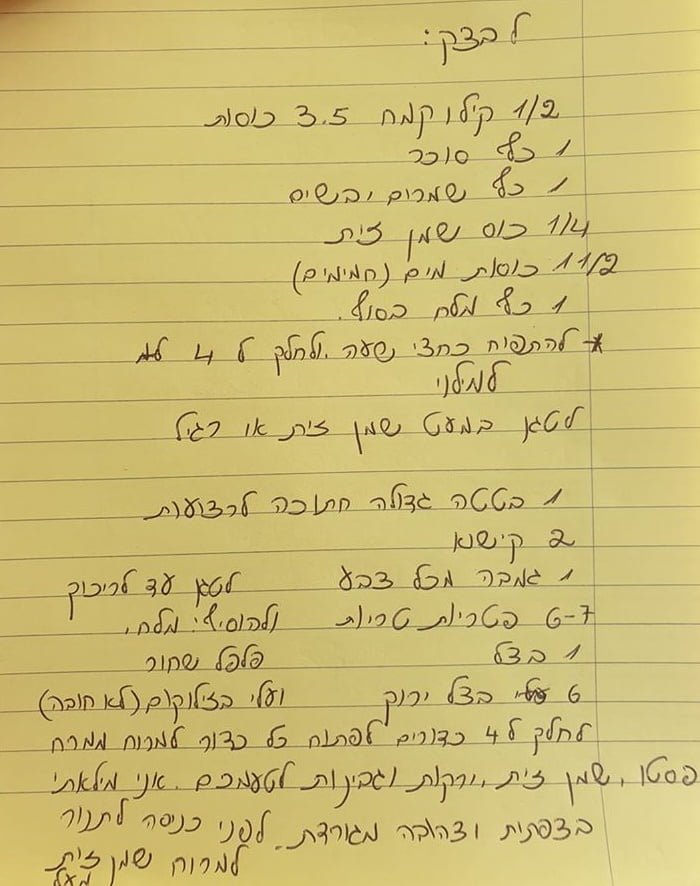 לבצק:
1/2 קילו קמח 3.5 כוסות
1 כף סוכר
1 כף שמרים יבשים
1/4 כוס שמן זית
1 1/2 כוסות מים (חמימים)
1 כף מלח בסוף.
* להתפיח כחצי שעה. ולחלק ל 4
למילוי
לטגן במעט שמן זית או רגיל
1 בטטה גדולה חתוכה לרצועות
2 קישוא
1 גמבה מכל צבע לטגן עד לריכוך
6-7 פטריות טריות ולהוסיף: מלח,
1 בצל פלפל שחור
6 עלי בצל ירוק ועלי בזילוקום (לא חובה)
לחלק ל 4 כדורים לפתוח כל כדור למרוח ממרח
פסטו, שמן זית, ירקות וגבינות לטעמכם. אני מילאתי
בצפתית וצהובה מגורדת. לפני כניסה לתנור
למרוח שמן זית
מעל